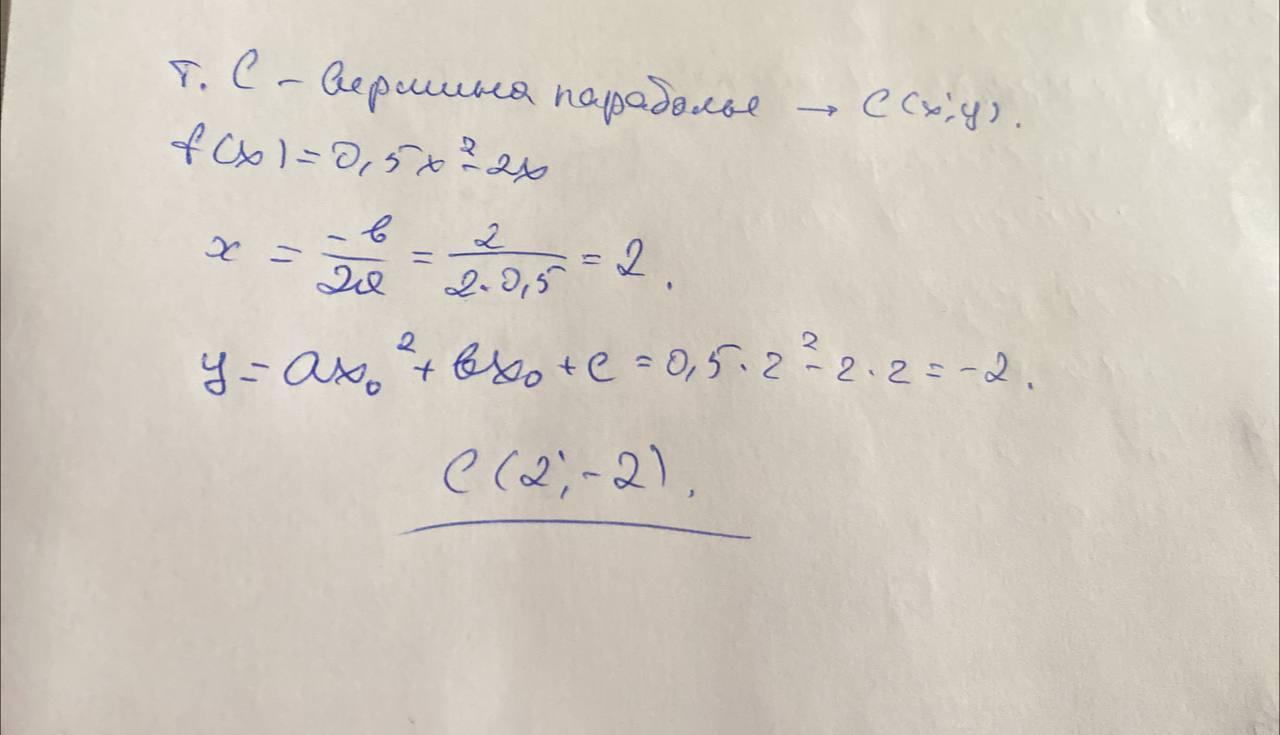 т. C – вершина параболы → C(x; y).
f(x) = 0,5x² - 2x
x = -b/2a = 2/2·0,5 = 2.
y = ax₀² + bx₀ + c = 0,5 · 2² - 2 · 2 = -2.
C(2; -2).